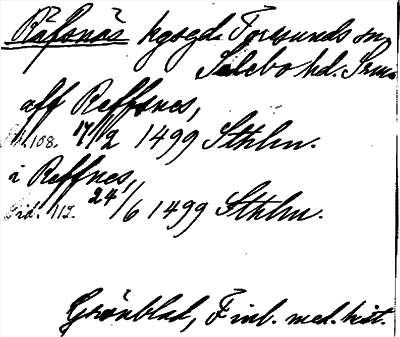 Räfsnäs kgsgd. Toresunds sn,
Selebo hd. Srm.
aff Reffsnes,
s. 108. 17/2 1499 Sthlm.
i Reffnes,
Sid. 112. 24/6 1499 Sthlm.
Grönblad, Finl. med. hist.